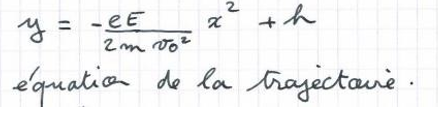 y = -eE / 2m v₀² x² + h
équation de la trajectoire.